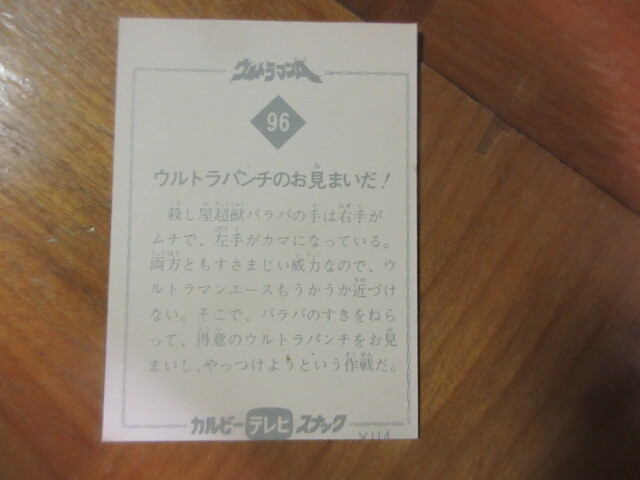 ウルトラマンA
96
ウルトラパンチのお見まいだ！
殺し屋超獣バラバの手は右手が
ムチで、左手がカマになっている。
両方ともすさまじい威力なので、ウ
ルトラマンエースもうかうか近づけ
ない。そこで、バラバのすきをねら
って、得意のウルトラパンチをお見
まいし、やっつけようという作戦だ。
カルビーテレビスナック